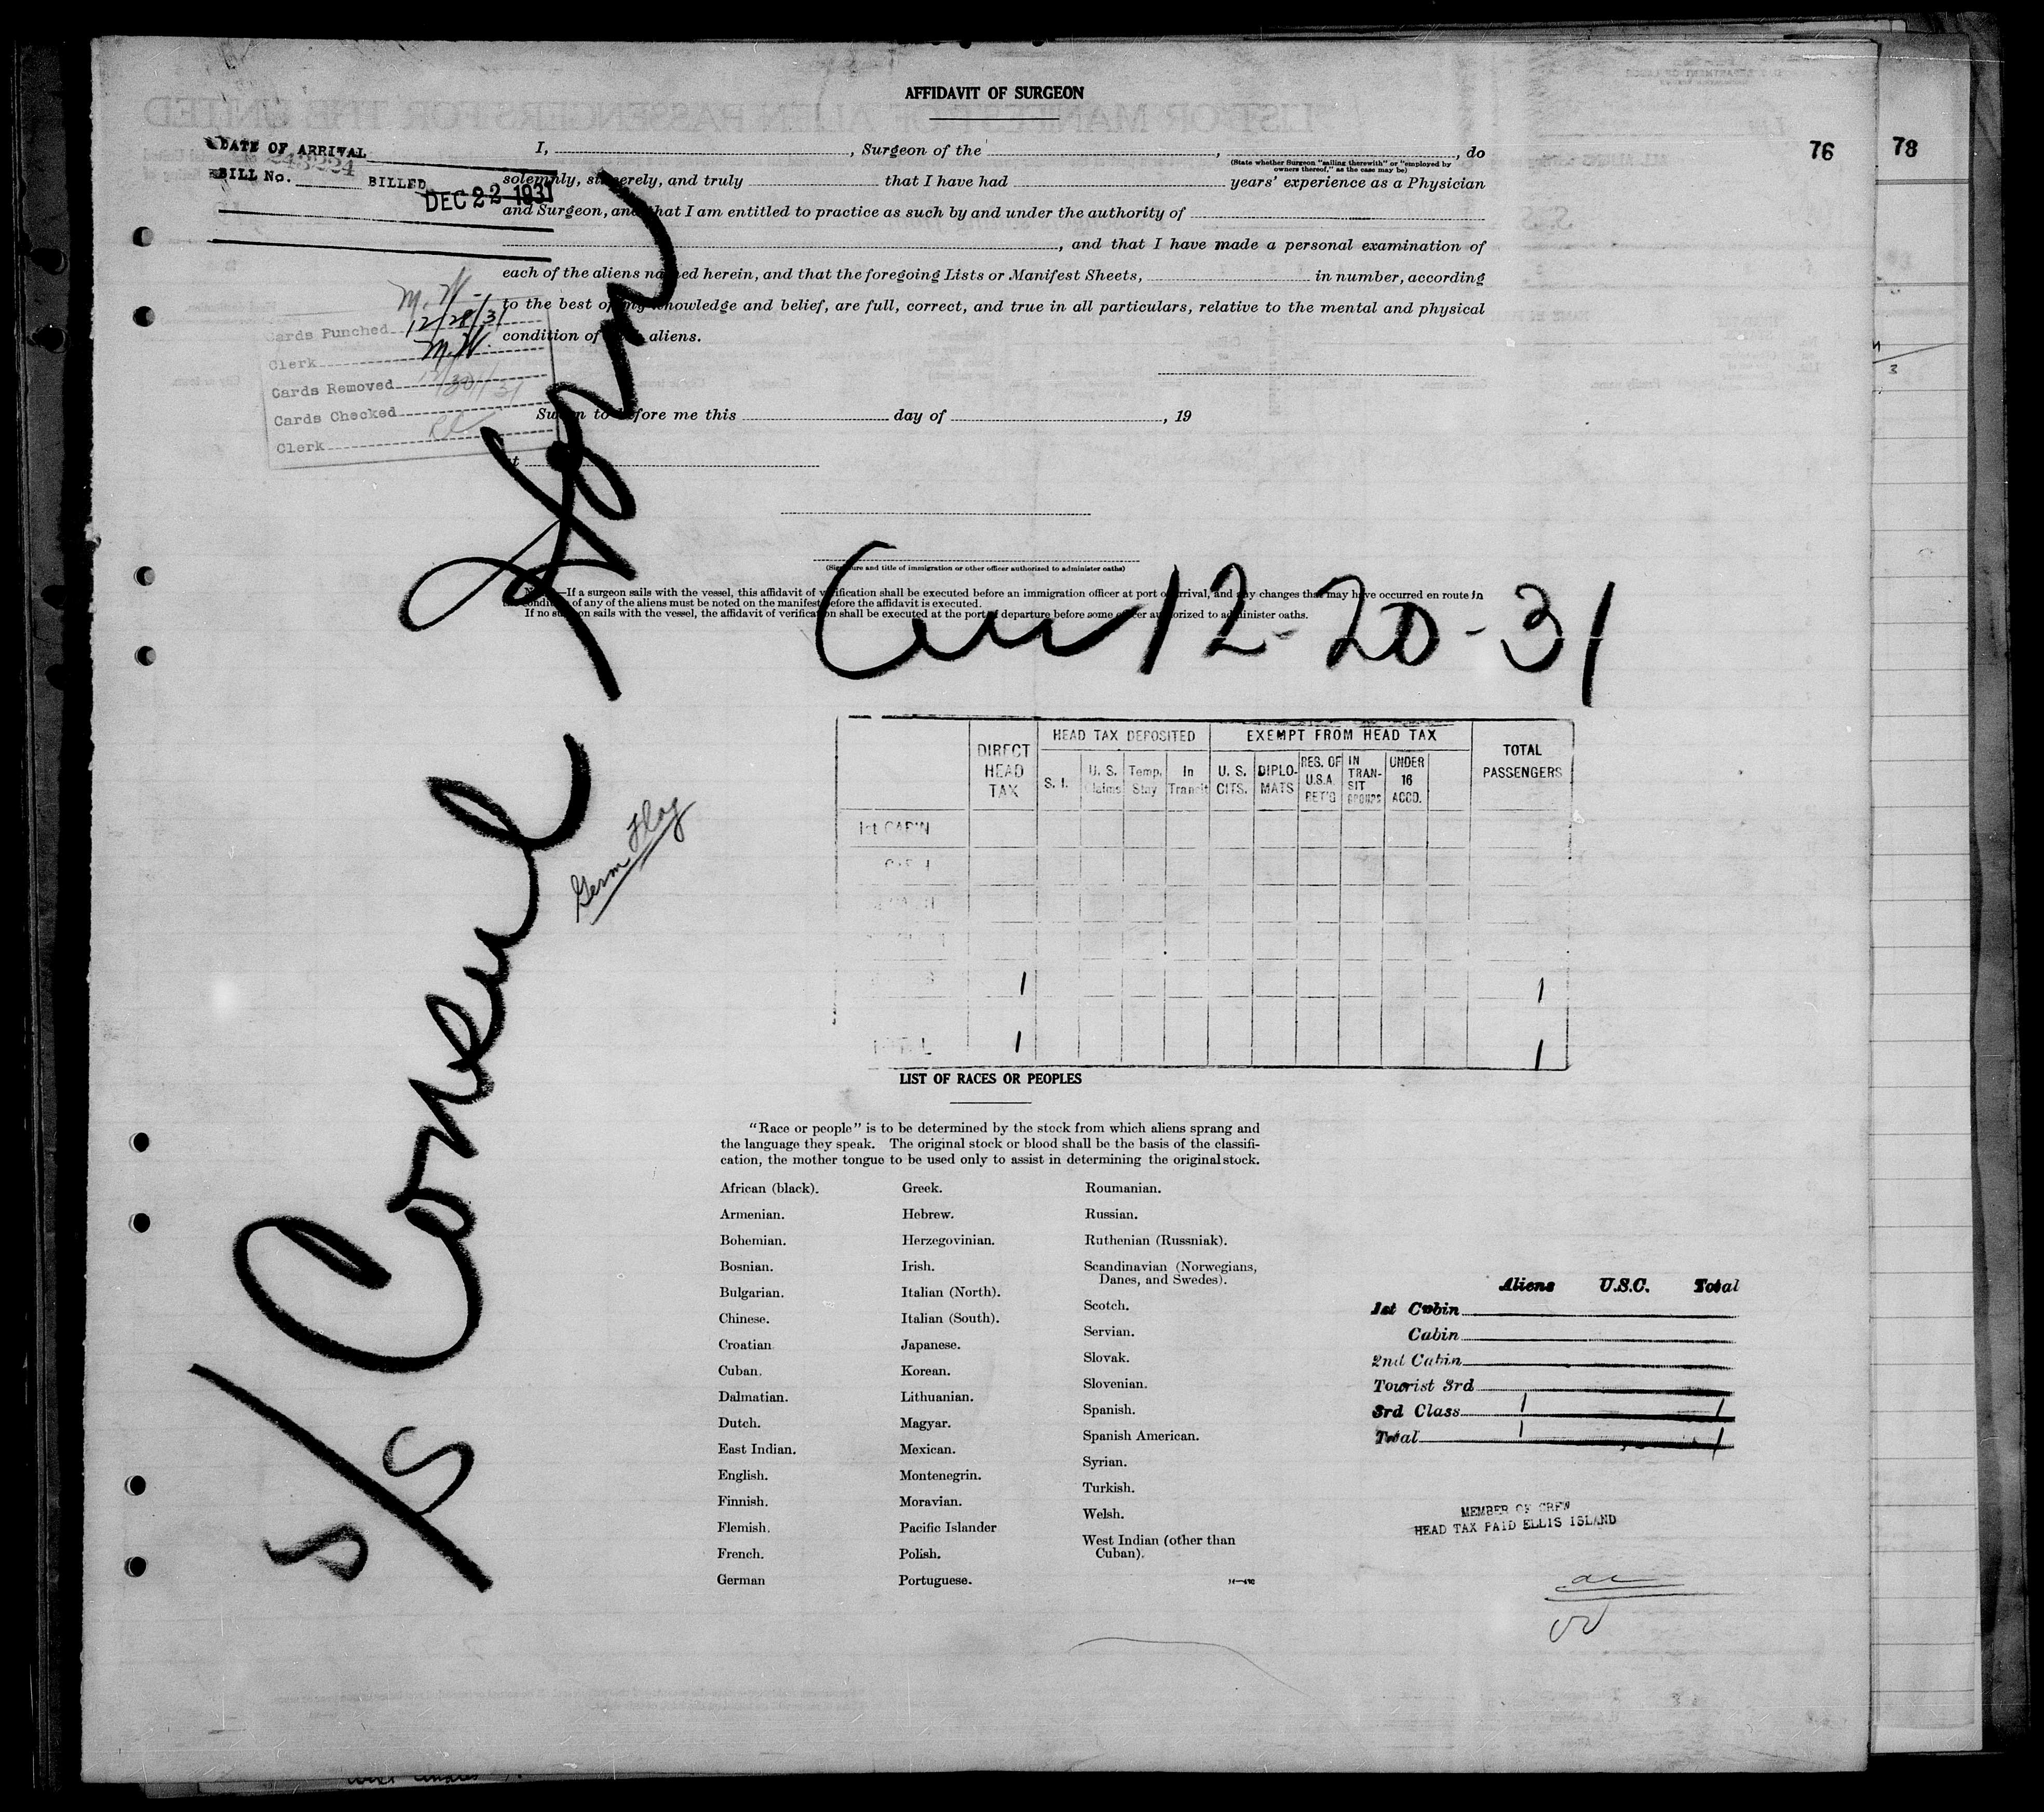 AFFIDAVIT OF SURGEON
76
78
DATE OF ARRIVAL
BILL No. 243224 BILLED
DEC 22 1931
I, , Surgeon of the , , do
(State whether Surgeon "sailing therewith" or "employed by
owners thereof," as the case may be)
solemnly, sincerely, and truly that I have had years' experience as a Physician
and Surgeon, and that I am entitled to practice as such by and under the authority of
, and that I have made a personal examination of
each of the aliens named herein, and that the foregoing Lists or Manifest Sheets, in number, according
to the best of my knowledge and belief, are full, correct, and true in all particulars, relative to the mental and physical
condition of said aliens.
M. W.
Cards Punched 12/28/31
Clerk M. W.
Cards Removed 12/30/31
Cards Checked
Clerk
Sworn to before me this day of , 19
at
(Signature and title of immigration or other officer authorized to administer oaths)
NOTE.—If a surgeon sails with the vessel, this affidavit of verification shall be executed before an immigration officer at port of arrival, and any changes that may have occurred en route in
the condition of any of the aliens must be noted on the manifest before the affidavit is executed.
If no surgeon sails with the vessel, the affidavit of verification shall be executed at the port of departure before some officer authorized to administer oaths.
S/S Consul Horn
Germ Flag
Arr 12-20-31
DIRECT HEAD TAX
HEAD TAX DEPOSITED
EXEMPT FROM HEAD TAX
TOTAL PASSENGERS
S. I. U. S. Claims Temp. Stay In Transit U. S. CITS. DIPLO- MATS RES. OF U.S.A. RET'G IN TRAN- SIT GROUPS UNDER 16 ACCD.
1st CABIN
1 1
TOTAL 1 1
LIST OF RACES OR PEOPLES
"Race or people" is to be determined by the stock from which aliens sprang and
the language they speak. The original stock or blood shall be the basis of the classifi-
cation, the mother tongue to be used only to assist in determining the original stock.
African (black).
Armenian.
Bohemian.
Bosnian.
Bulgarian.
Chinese.
Croatian
Cuban.
Dalmatian.
Dutch.
East Indian.
English.
Finnish.
Flemish.
French.
German
Greek.
Hebrew.
Herzegovinian.
Irish.
Italian (North).
Italian (South).
Japanese.
Korean.
Lithuanian.
Magyar.
Mexican.
Montenegrin.
Moravian.
Pacific Islander
Polish.
Portuguese.
Roumanian.
Russian.
Ruthenian (Russniak).
Scandinavian (Norwegians,
Danes, and Swedes).
Scotch.
Servian.
Slovak.
Slovenian.
Spanish.
Spanish American.
Syrian.
Turkish.
Welsh.
West Indian (other than
Cuban).
Aliens U.S.C. Total
1st Cabin
Cabin
2nd Cabin
Tourist 3rd
3rd Class 1 1
Total 1 1
MEMBER OF CREW
HEAD TAX PAID ELLIS ISLAND